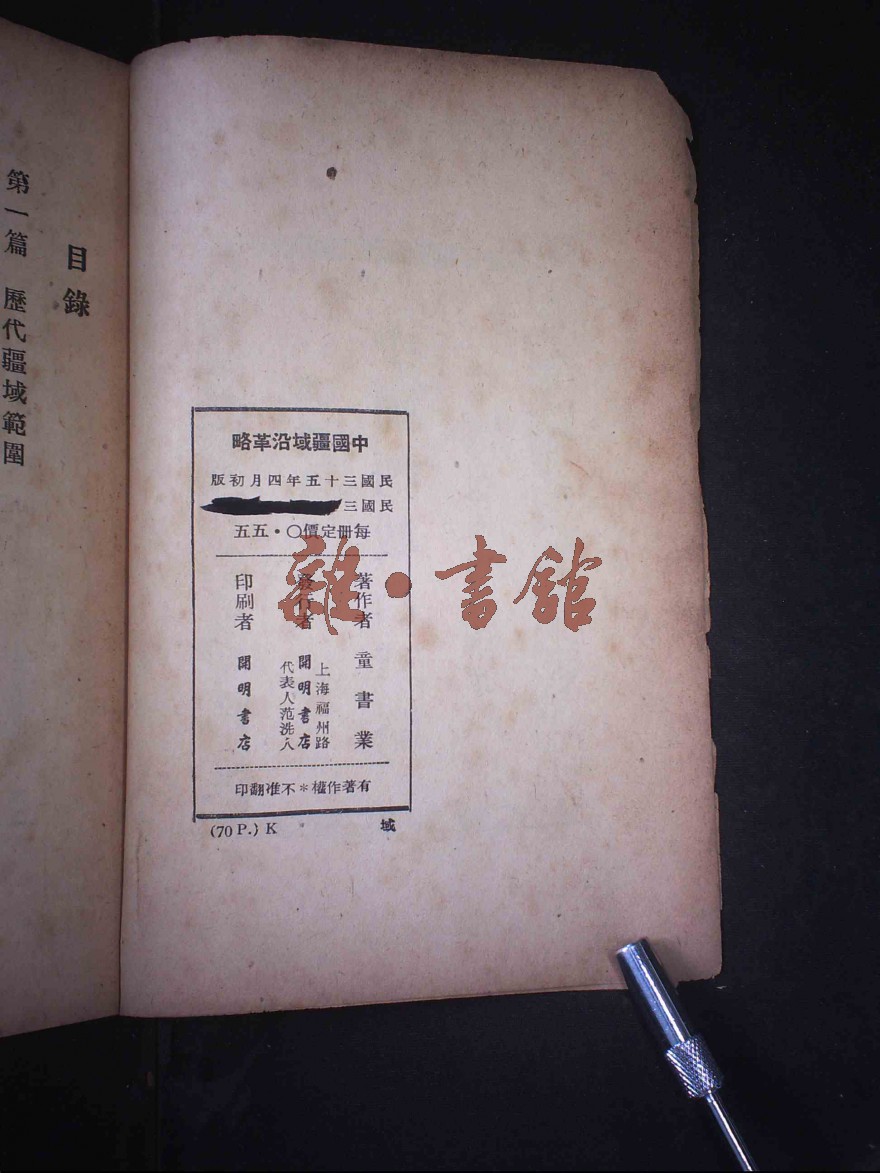 中國疆域沿革略
民國三十五年四月初版
民國三
每冊定價〇·五五
著作者 童書業
發行者 上海福州路
開明書店
代表人范洗人
印刷者 開明書店
有著作權*不准翻印
(70 P.) K 域
目錄
第一篇 歷代疆域範圍
雜·書館